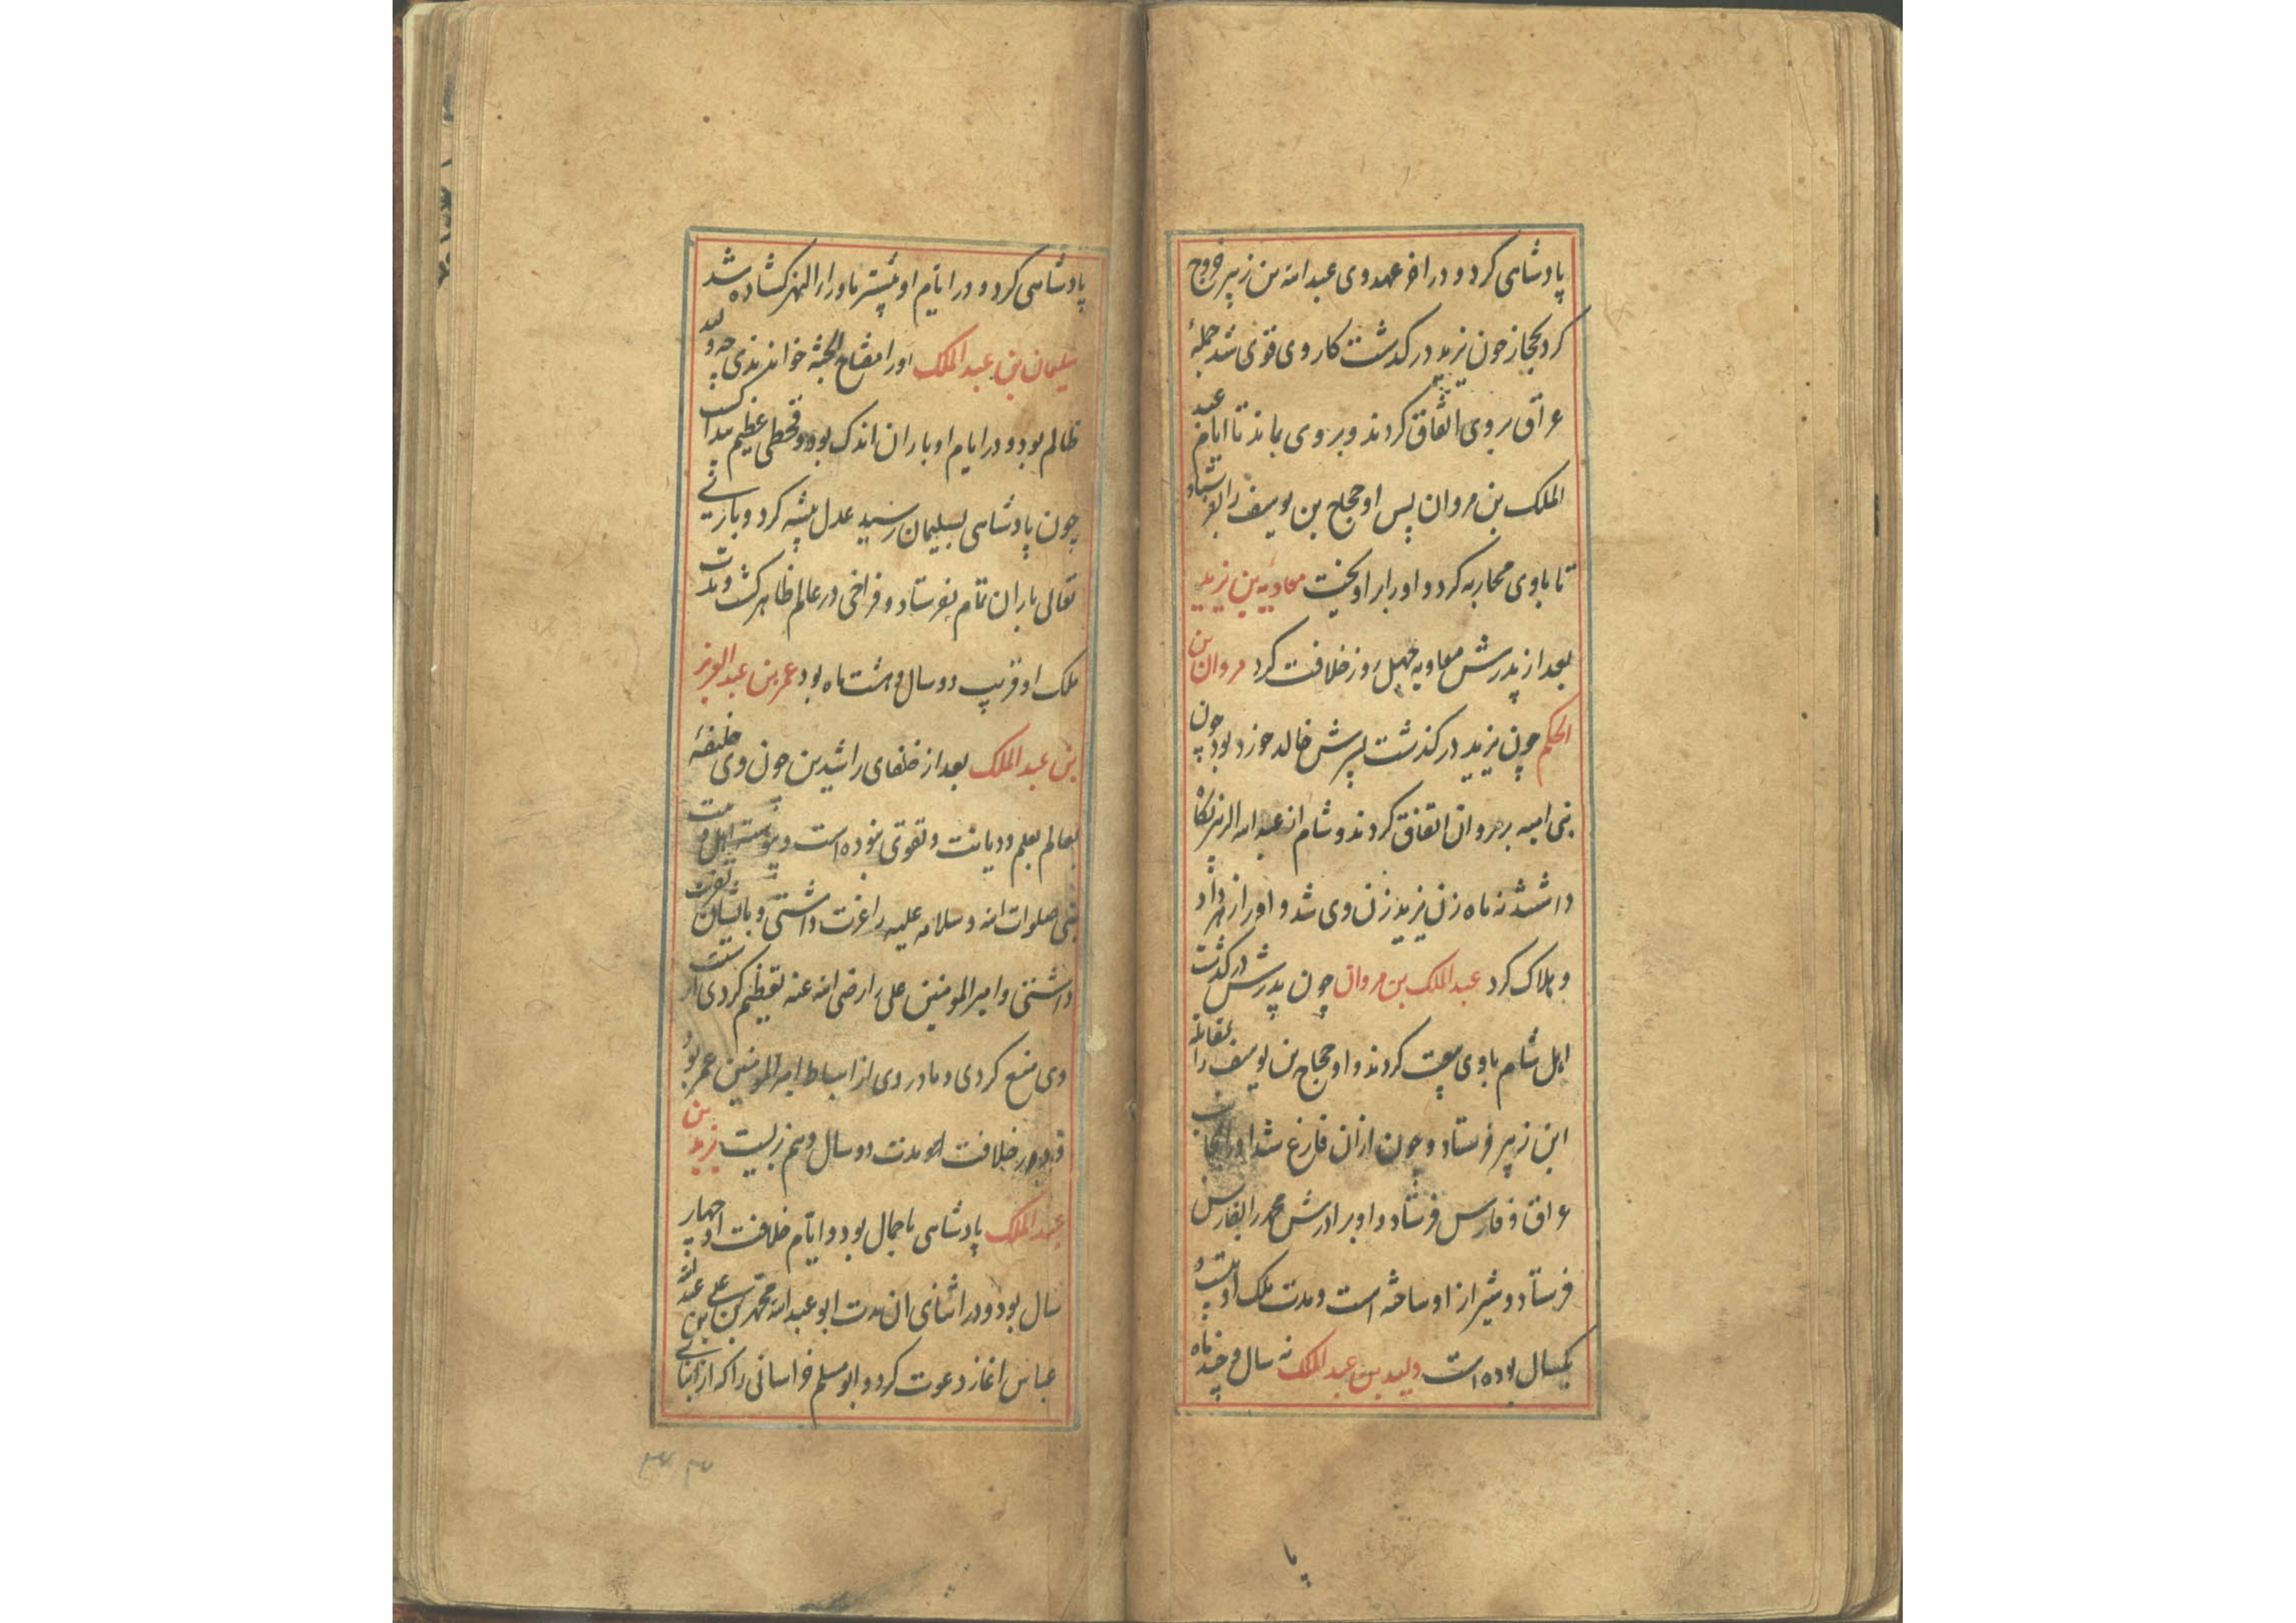 پادشاهی کرد و در اخر عهد وی عبد الله بن زبیر خروج
کرد بحجاز چون یزید در کدشت کار وی قوی شد جمله
عراق بر وی اتفاق کردند و بر وی بماند تا ایام عبد
الملک بن مروان پس او حجاج بن یوسف را بفرستاد
تا با وی محاربه کرد و او را براویخت معاویه بن یزید
بعد از پدرش معاویه چهل روز خلافت کرد مروان بن
الحکم چون یزید در کذشت پسرش خالد خورد بود چون
بنی امیه بر مروان اتفاق کردند و شام از عبد الله الزبیر نکاه
داشتند نه ماه زن یزید زن وی شد و او را زهر داد
و هلاک کرد عبد الملک بن مروان چون پدرش درکذشت
اهل شام با وی بیعت کردند و او حجاج بن یوسف را بمقاتله
ابن زبیر فرستاد و چون ازان فارغ شد او را بجانب
عراق و فارس فرستاد و او برادرش محمد را بفارس
فرستاد و شیراز او ساخته است و مدت ملک او بیست و
یکسال بوده است ولید بن عبد الملک نه سال و چند ماه
پا
پادشاهی کرد و در ایام او بیشتر ماورا النهر کشاده شد
سلیمان بن عبد الملک او را مفتاح الجنه خواندندی چه ولید
ظالم بود و در ایام او باران اندک بود و قحطی عظیم پیدا کشت
چون پادشاهی بسلیمان رسید عدل پیشه کرد و باری
تعالی باران تمام بفرستاد و فراخی در عالم ظاهر کشت و مدت
ملک او قریب دو سال و هشت ماه بود عمر بن عبد العزیز
بن عبد الملک بعد از خلفای راشدین چون وی خلیفه
بعالم بعلم و دیانت و تقوی نبوده است و پیوسته اهل بیت
نبی صلوات الله و سلامه علیه را عزت داشتی و بایشان تقرب
داشتی و امیر المومنین علی را رضی الله عنه تعظیم کردی از
وی منع کردی و مادر وی از اسباط امیر المومنین عمر بود
خلافت او مدت دو سال و نیم زیست یزید بن
عبد الملک پادشاهی باجمال بود و ایام خلافت او چهار
سال بود و در اثنای ان مدت ابو عبد الله محمد بن علی بن عبد الله
عباس اغاز دعوت کرد و ابو مسلم خراسانی را که از ابنای